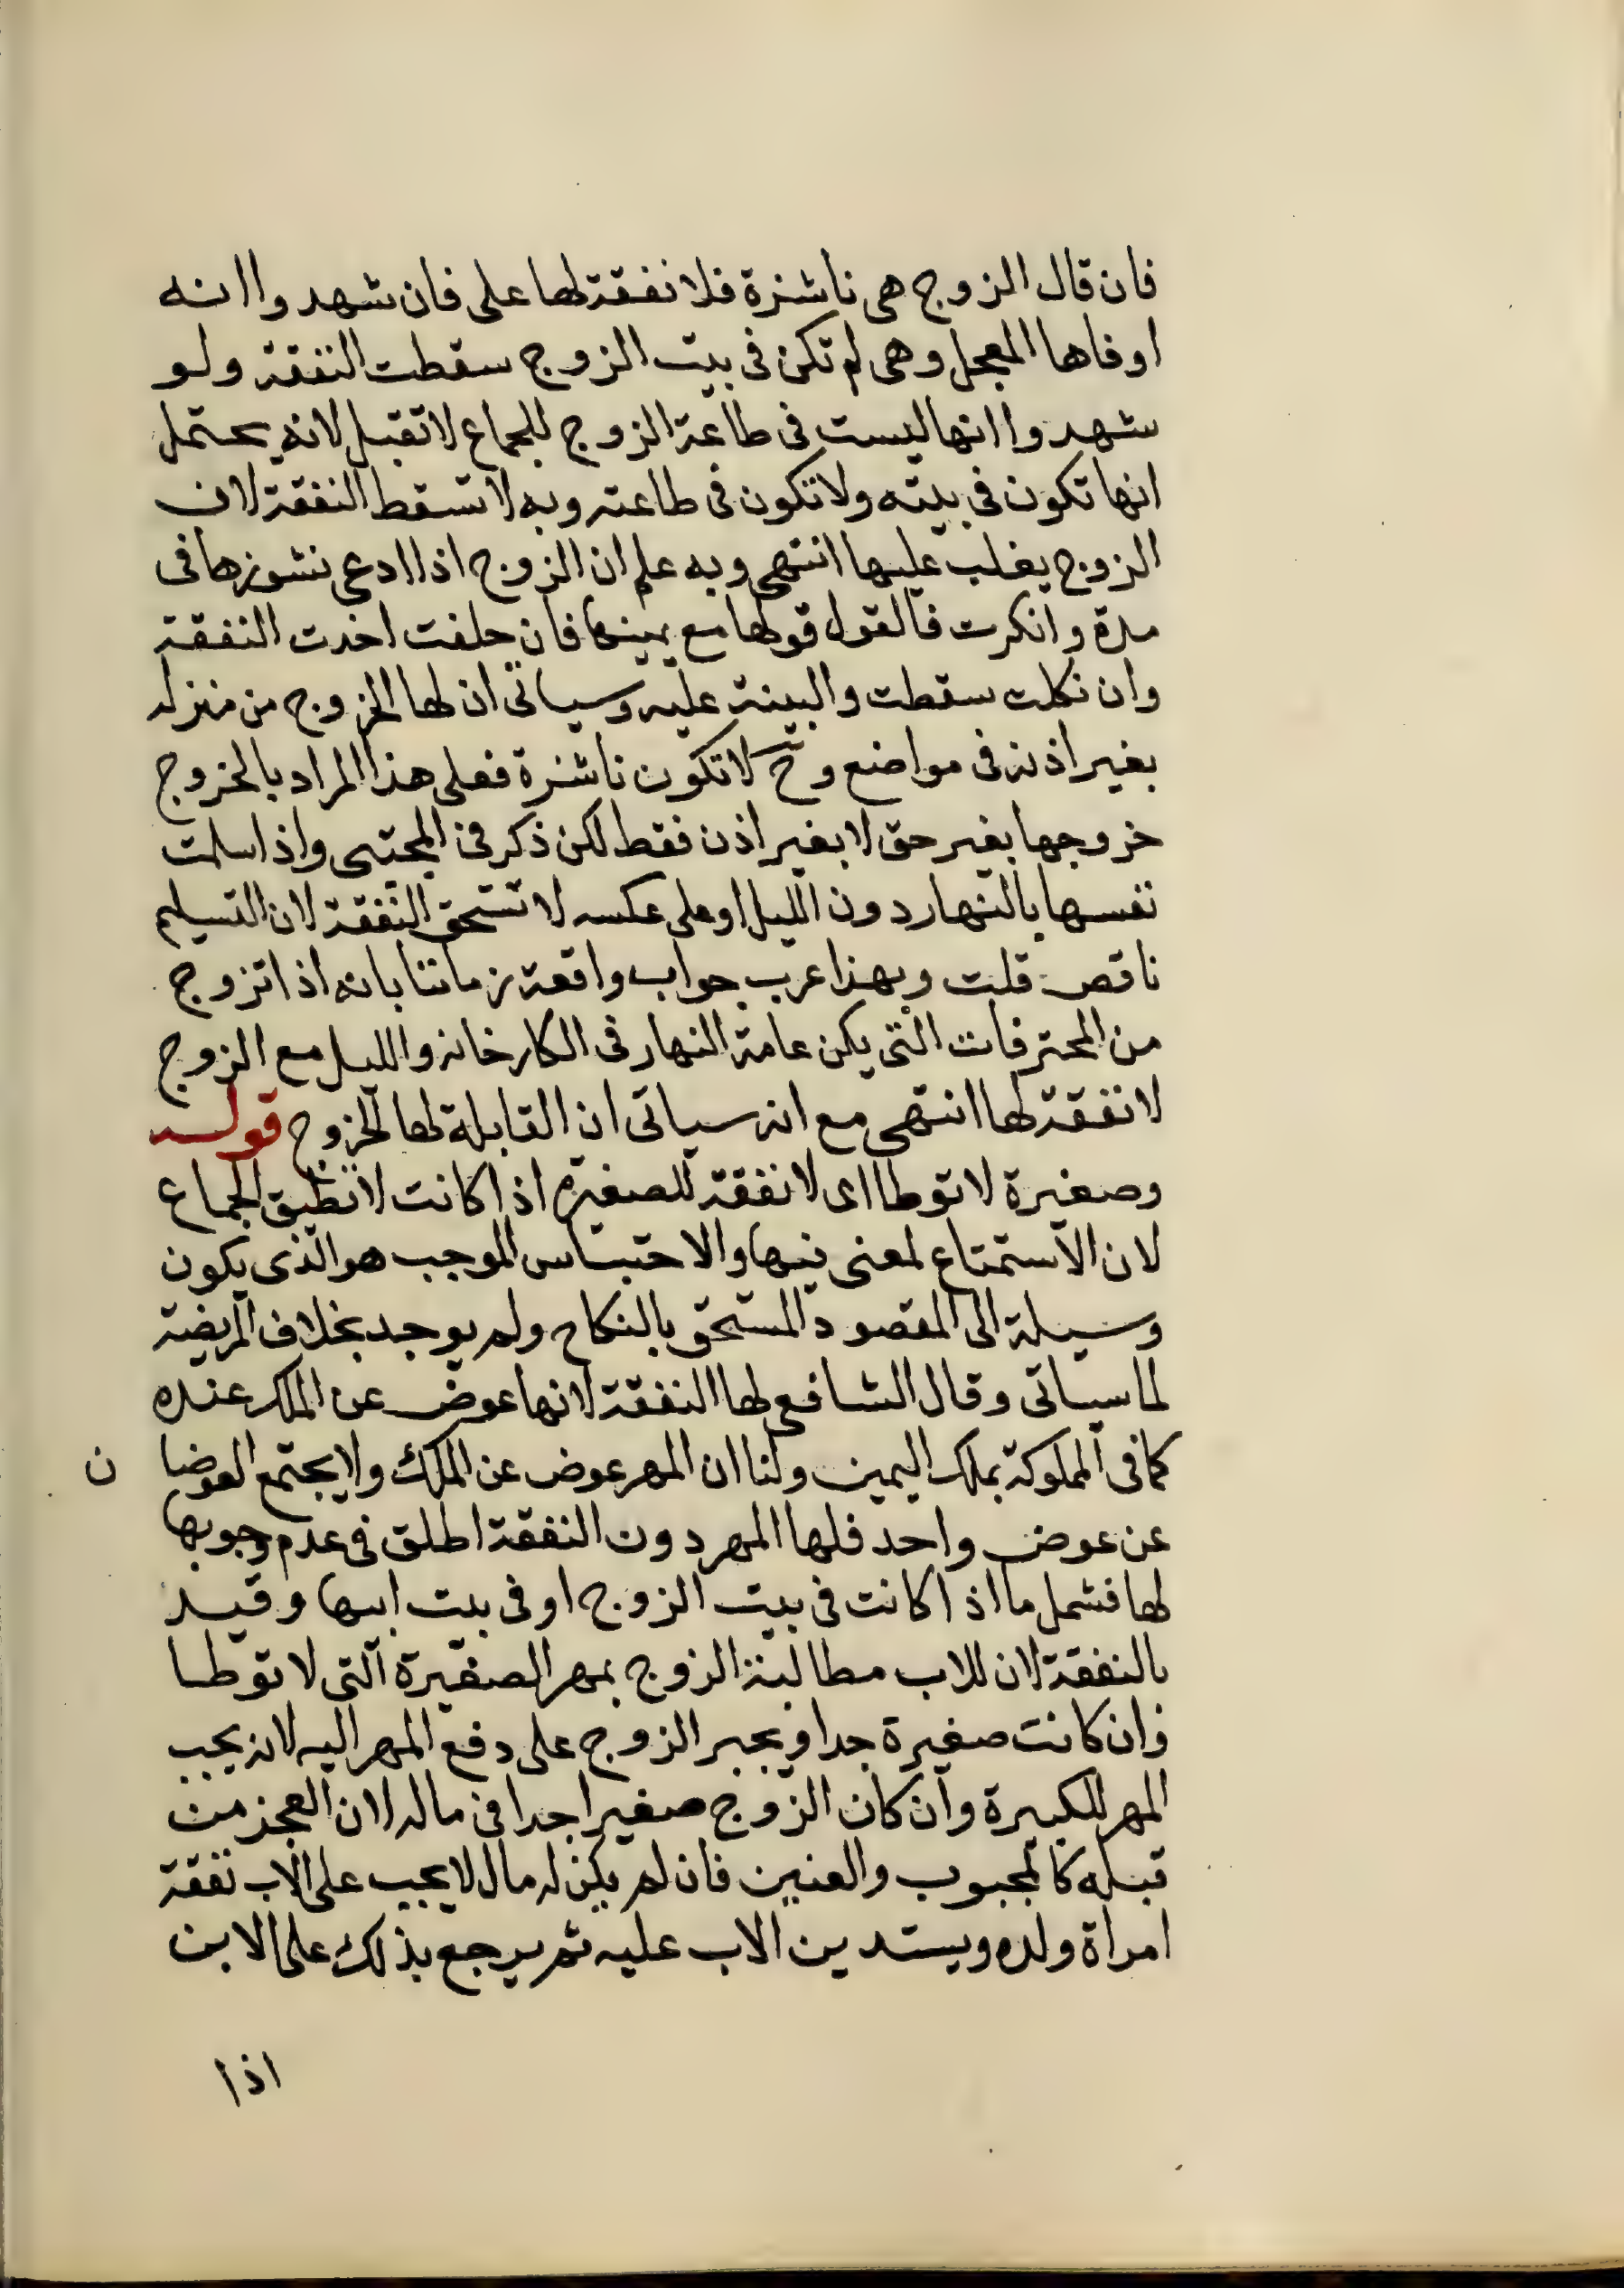 فان قال الزوج هى ناشزة فلا نفقة لها على فان شهد وا انه
اوفاها المعجل وهى لم تكن فى بيت الزوج سقطت النفقة ولو
شهدوا انها ليست فى طاعة الزوج للجماع لا تقبل لانه يحتمل
انها تكون فى بيته ولا تكون فى طاعته وبه لا تسقط النفقة لان
الزوج يغلب عليها انتهى وبه علم ان الزوج اذا ادعى نشوزها فى
مدة وانكرت فالقول قولها مع يمينها فان حلفت اخدت النفقة
وان نكلت سقطت والبينة عليه وسياتى ان لها الخروج من منزله
بغير اذنه فى مواضع وح لا تكون ناشزة فعلى هذا المراد بالخروج
خروجها بغير حق لا بغير اذن فقط لكن ذكر فى المجتبى واذا سلمت
نفسها بالنهار دون الليل او على عكسه لا تستحق النفقة لان التسليم
ناقص قلت وبهذا عرب جواب واقعة زماننا بانه اذا تزوج
من المحترفات التى يكن عامة النهار فى الكارخانه والليل مع الزوج
لا نفقة لها انتهى مع انه سياتى ان القابلة لها الخروج قوله
وصغيرة لا توطا اى لا نفقة للصغيرة اذا كانت لا تطيق الجماع
لان الاستمتاع لمعنى فيها والاحتباس الموجب هو الذى يكون
وسيلة الى المقصود المستحق بالنكاح ولم يوجد بخلاف المريضة
لما سياتى وقال الشافعى لها النفقة لانها عوض عن الملك عنده
كما فى المملوكة بملك اليمين ولنا ان المهر عوض عن الملك ولا يجتمع العوضا ن
عن عوض واحد فلها المهر دون النفقة اطلق فى عدم وجوبها
لها فشمل ما اذا كانت فى بيت الزوج او فى بيت ابيها وقيد
بالنفقة لان للاب مطالبة الزوج بمهر الصغيرة التى لا توطا
وان كانت صغيرة جدا ويجبر الزوج على دفع المهر اليه لانه يجب
المهر للكبيرة وان كان الزوج صغيرا جدا فى ماله لان العجز من
قبله كالمجبوب والعنين فان لم يكن له مال لا يجب على الاب نفقة
امراة ولده ويستدين الاب عليه ثم يرجع بذلك على الابن
اذا